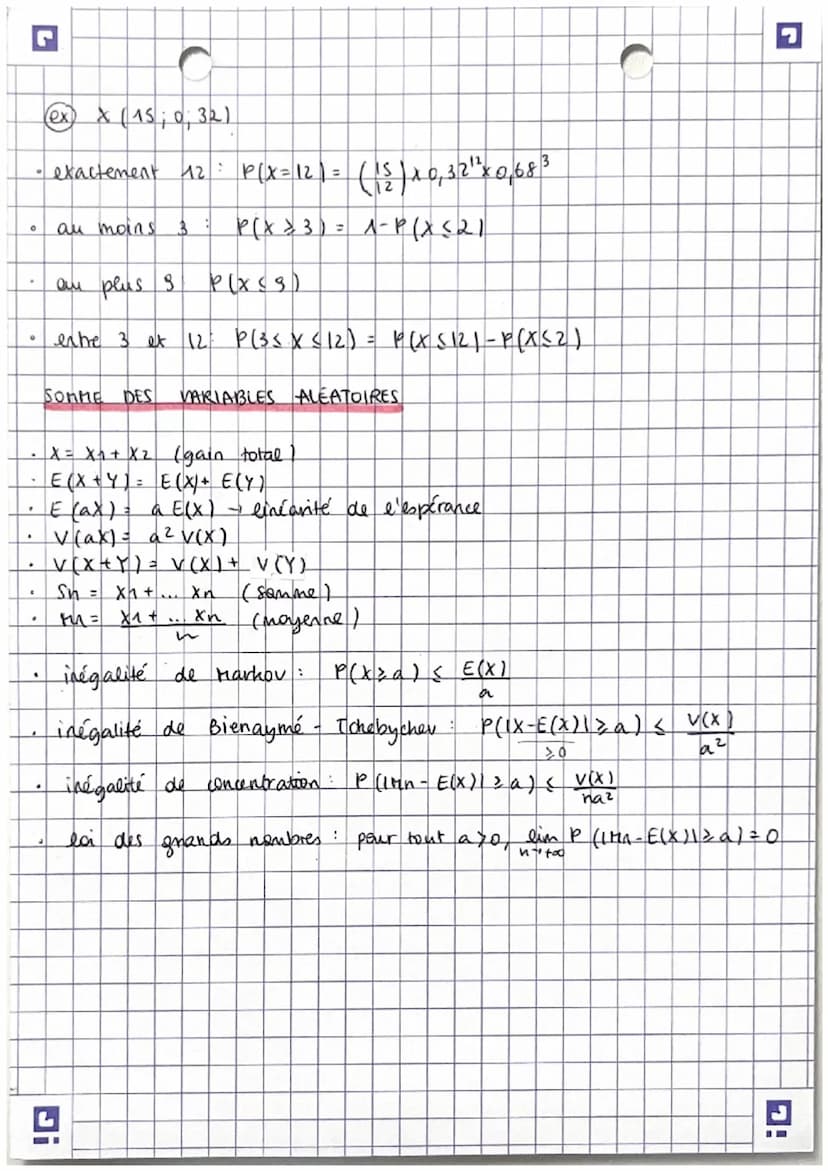 ex X (15 ; 0,32)
• exactement 12 : P(X=12) = (15 12) x 0,32¹² x 0,68³
• au moins 3 : P(X ≥ 3) = 1-P(X ≤ 2)
• au plus 9 P(X ≤ 9)
• entre 3 et 12 : P(3 ≤ X ≤ 12) = P(X ≤ 12) - P(X ≤ 2)
SOMME DES VARIABLES ALÉATOIRES
• X = X1 + X2 (gain total)
• E(X+Y) = E(X) + E(Y)
• E(aX) = a E(X) → linéarité de l'espérance
• V(aX) = a² V(X)
• V(X+Y) = V(X) + V(Y)
• Sn = X1 + ... Xn (somme)
• Mn = X1 + ... Xn / n (moyenne)
• inégalité de Markov : P(X ≥ a) ≤ E(X) / a
• inégalité de Bienaymé - Tchebychev : P(|X-E(X)| ≥ a) ≤ V(X) / a²
≥ 0
• inégalité de concentration : P(|Mn - E(X)| ≥ a) ≤ V(X) / na²
• loi des grands nombres : pour tout a>0, lim n→+∞ P(|Mn-E(X)| ≥ a) = 0